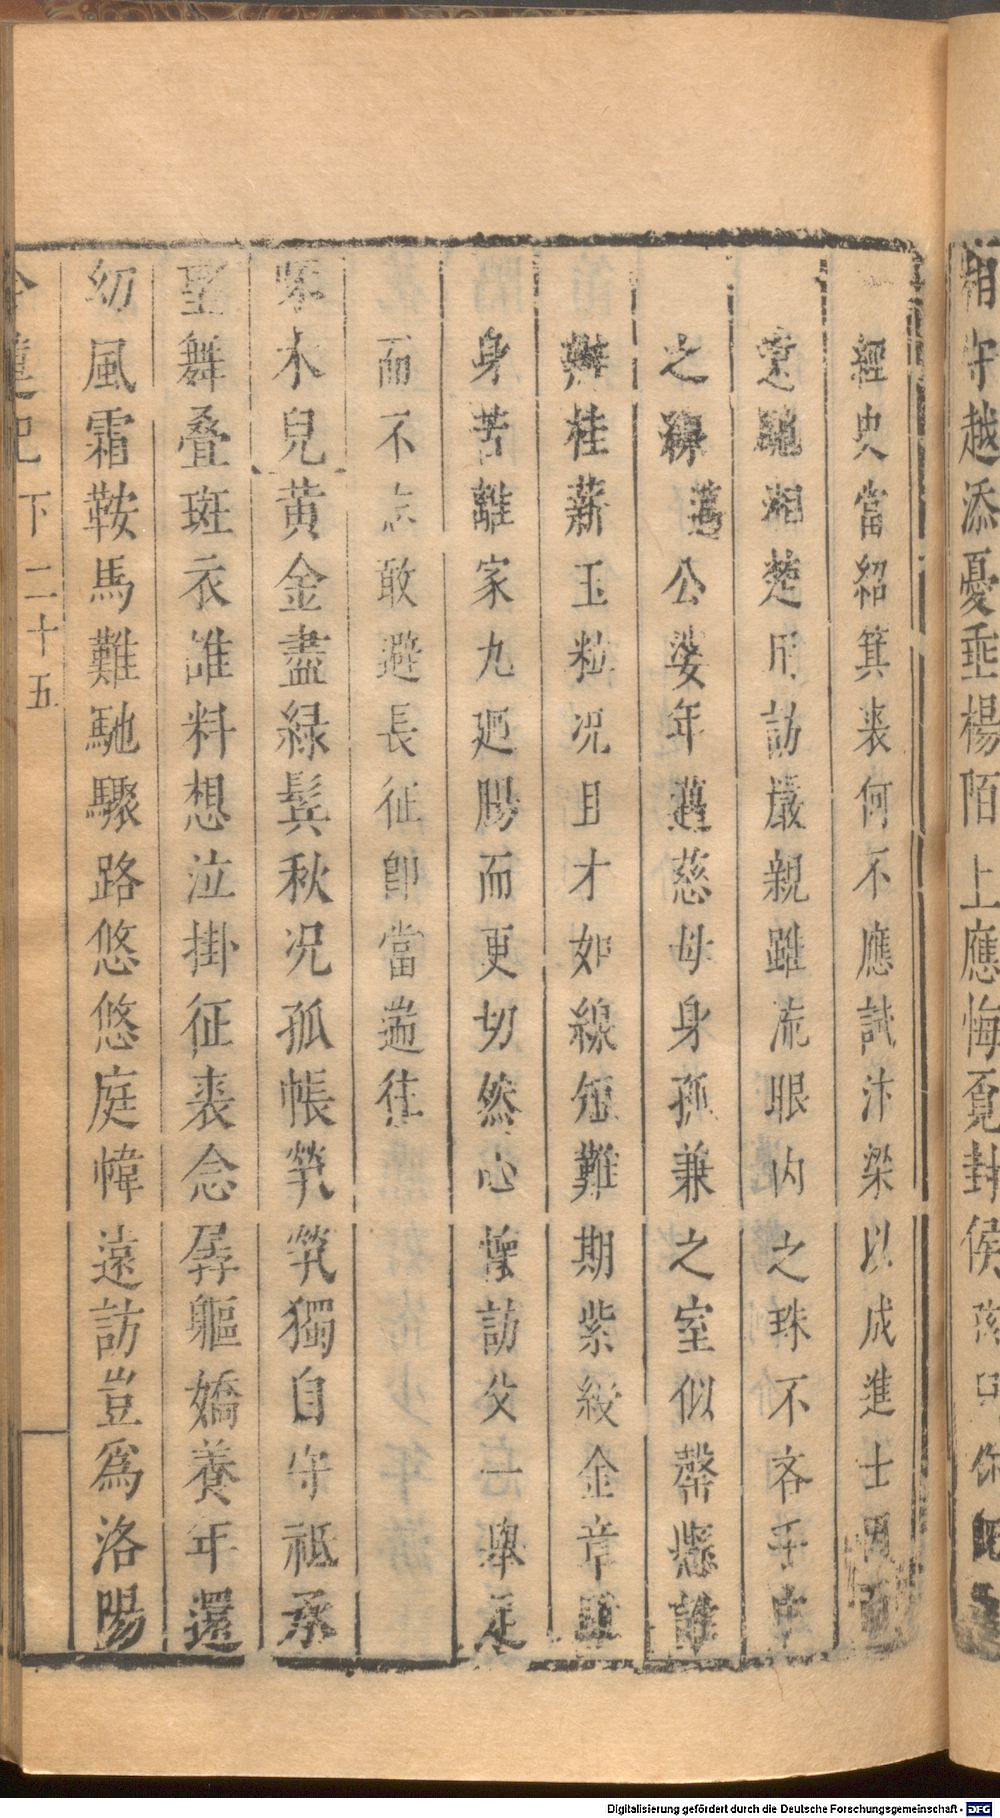 經史當紹箕裘何不應試汴梁以成進士因
意馳湘楚用訪嚴親雖流眼内之珠不吝手中
之線舊公婆年邁慈母身孤兼之室似罄懸誰
辦桂薪玉粒况且才如線短難期紫綬金章
身苦離家九廻腸而更切然心懷訪父一舉足
而不忘敢避長征卽當遄往
木兒黄金盡緑鬂秋况孤帳煢煢獨自守祗承
舞叠斑衣誰料想泣掛征裘念孱軀嬌養年還
幼風霜鞍馬難馳驟路悠悠庭幃遠訪豈爲洛陽
下 二十五
守越添憂垂楊陌上應悔覓封侯
Digitalisierung gefördert durch die Deutsche Forschungsgemeinschaft - DFG